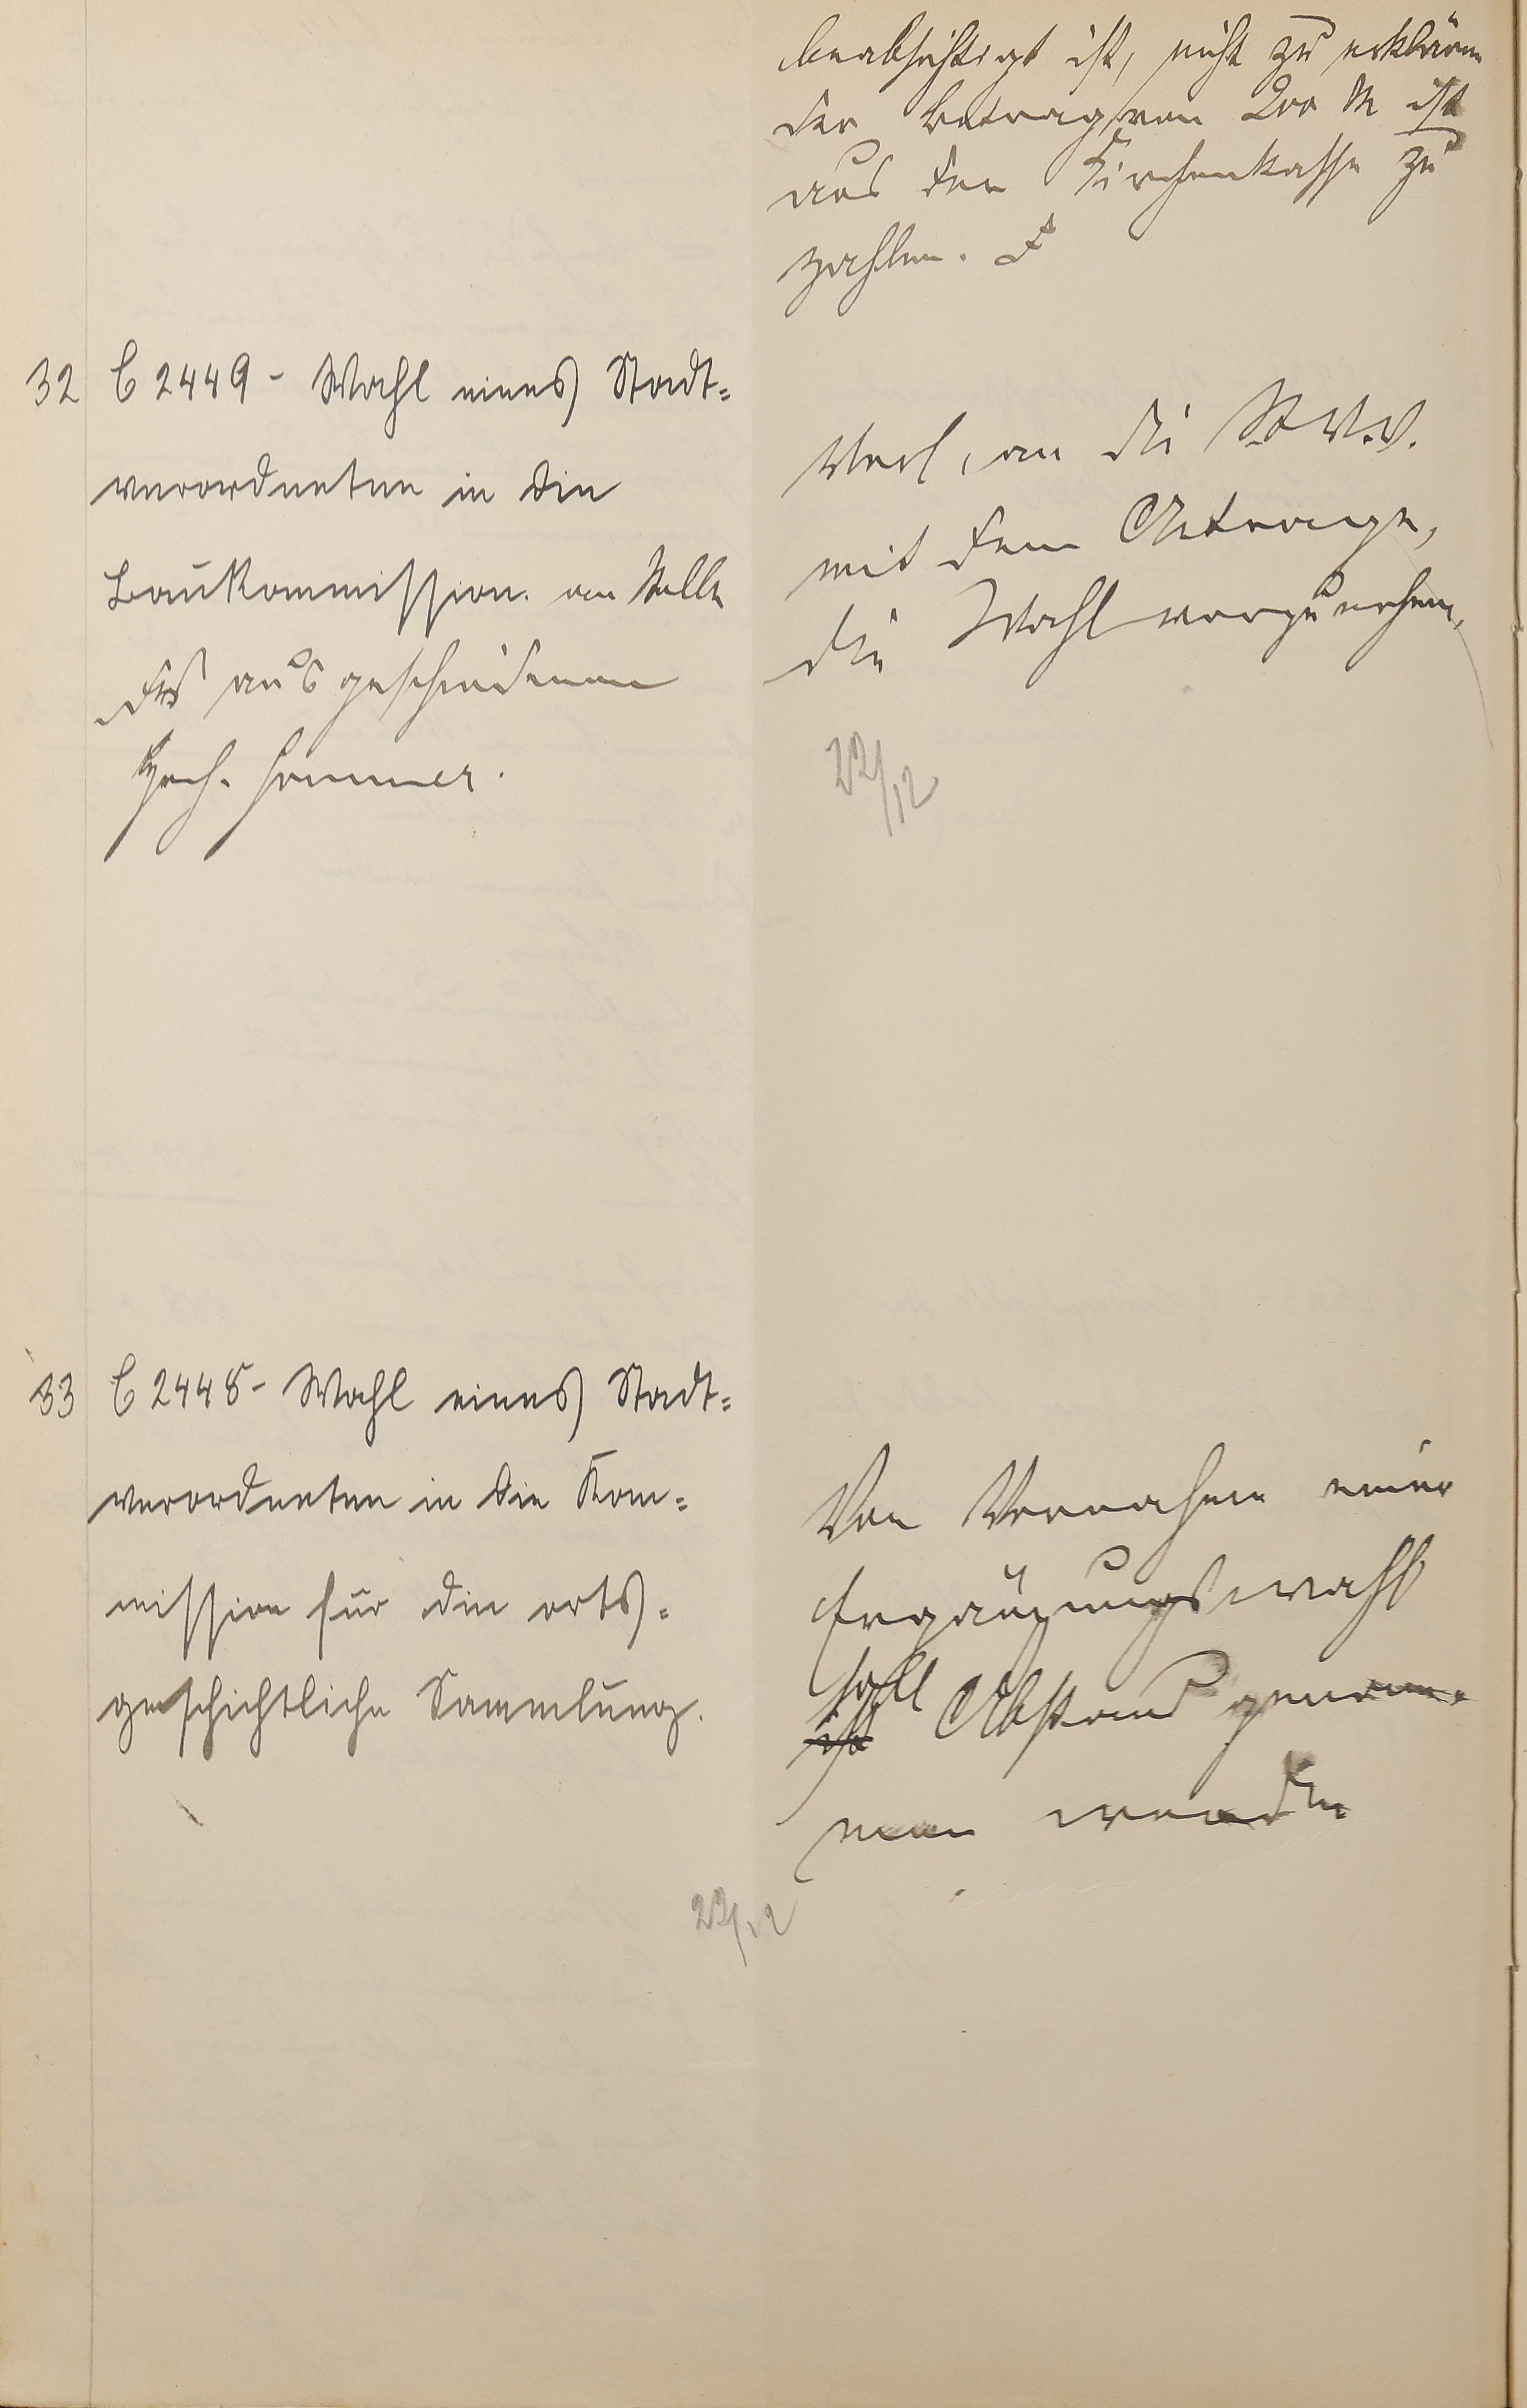 beabsichtigt ist, nicht zu erklären
der Betrag von 200 M ist
aus der Kirchenkasse zu
zahlen.
32 C 2449 - Wahl eines Stadt=
verordneten in die
Baukommission. an Stelle
des ausgeschiedenen
Hch. Hommer.
Vorl. an die St.V.V.
mit dem Antrage,
die Wahl vorzunehmen.
22/12
33 C 2448 - Wahl eines Stadt=
verordneten in die Kom=
mission für die orts=
geschichtliche Sammlung.
Von Vornahme einer
Ergänzungswahl
soll
ist Abstand genom-
men werden
22/12